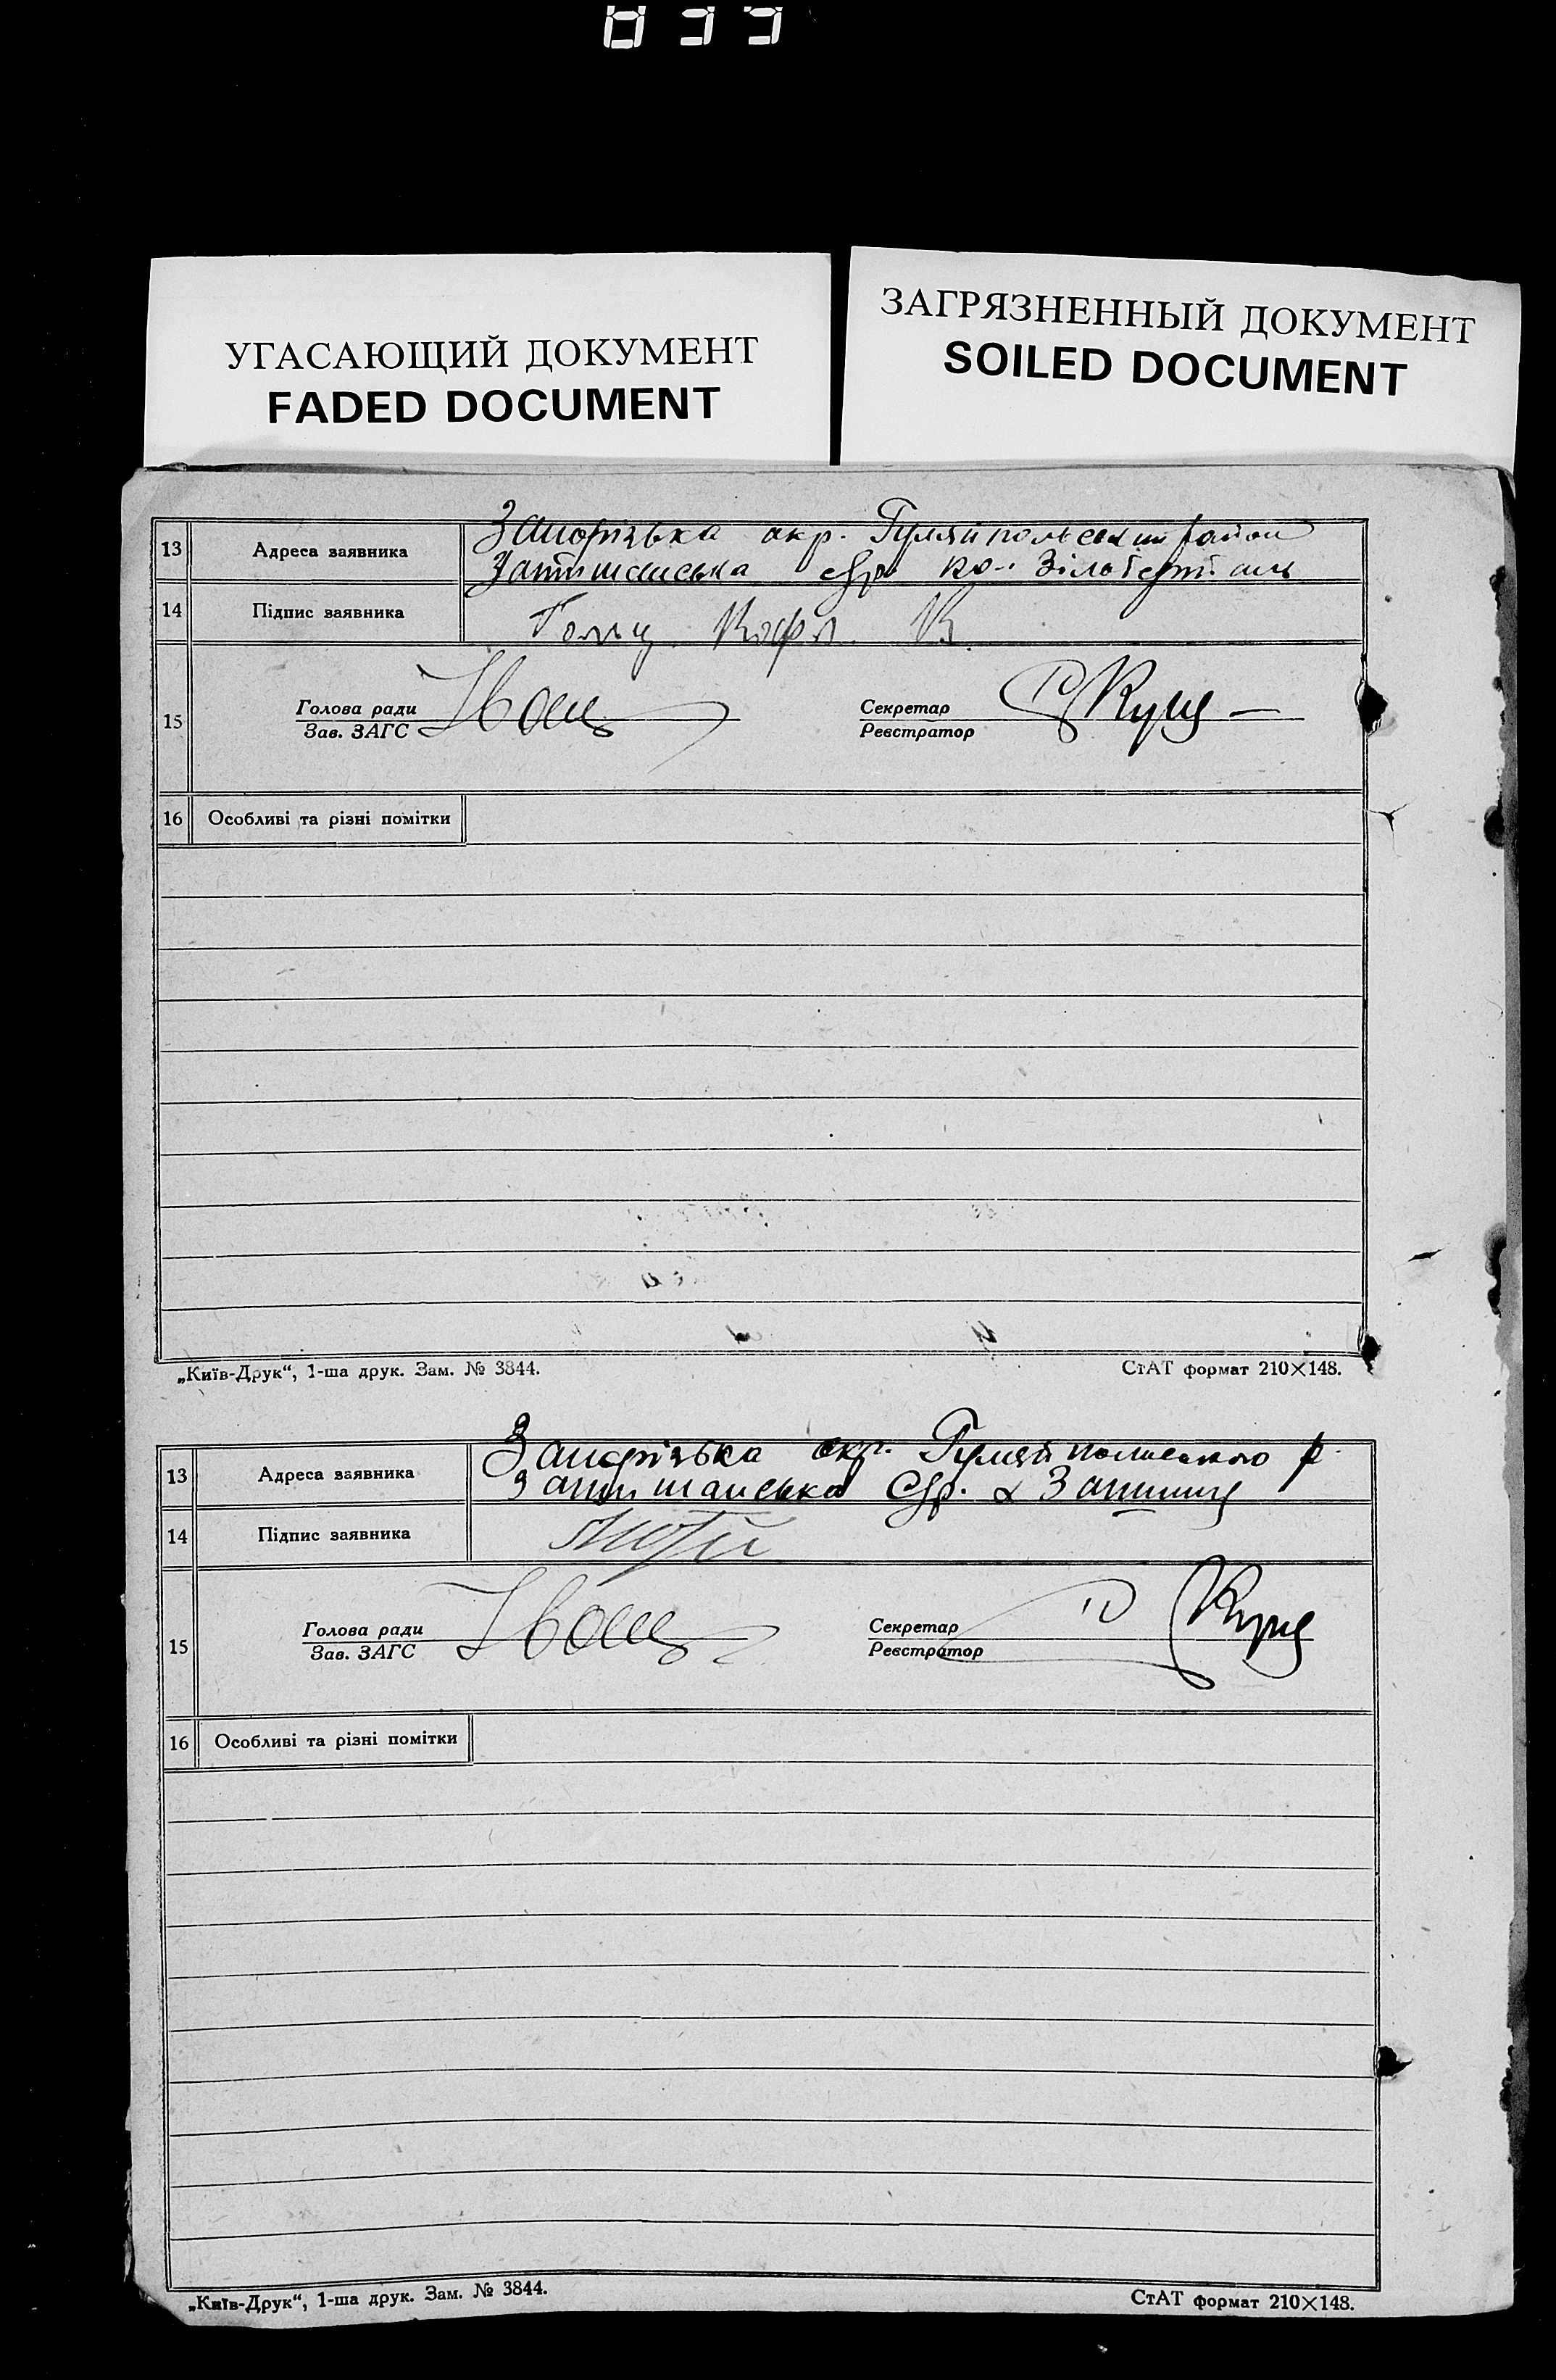 833
УГАСАЮЩИЙ ДОКУМЕНТ
FADED DOCUMENT
ЗАГРЯЗНЕННЫЙ ДОКУМЕНТ
SOILED DOCUMENT
13 Адреса заявника Запорізька окр. Гуляйпольський район
Затишанська с/р кол.
14 Підпис заявника Гольц
15 Голова ради Секретар
Зав. ЗАГС Реєстратор
16 Особливі та різні помітки
„Київ-Друк“, 1-ша друк. Зам. № 3844. СтАТ формат 210×148.
13 Адреса заявника Запорізька окр. Гуляйпольського р.
Затишанська с/р.
14 Підпис заявника
15 Голова ради Секретар
Зав. ЗАГС Реєстратор
16 Особливі та різні помітки
„Київ-Друк“, 1-ша друк. Зам. № 3844. СтАТ формат 210×148.